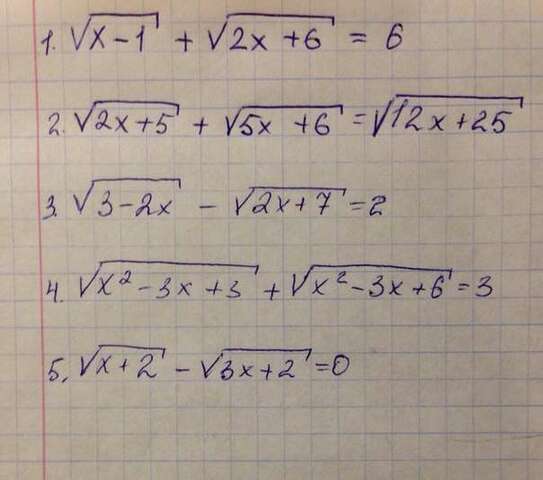 1. √(x-1) + √(2x+6) = 6
2. √(2x+5) + √(5x+6) = √(12x+25)
3. √(3-2x) - √(2x+7) = 2
4. √(x²-3x+3) + √(x²-3x+6) = 3
5. √(x+2) - √(3x+2) = 0